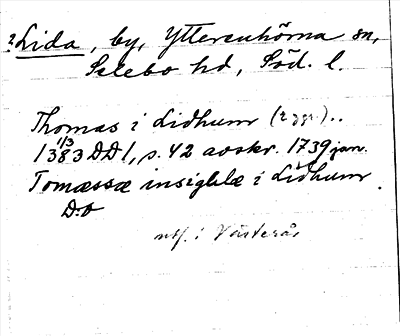 ? Lida, by, Ytterenhörna sn,
Selebo hd, Söd. l.
Thomas i Lidhum (2 ggr.)..
1383 1/3 DD1, s. 42 avskr. 1739 jan.
Tomæssæ insighlæ i Lidhum.
D:o
utf. i Västerås